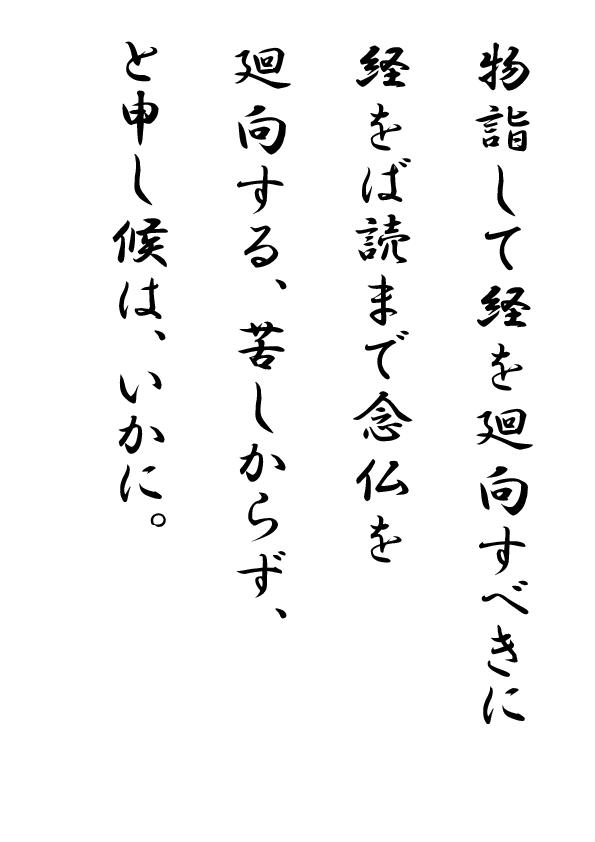 物詣して経を廻向すべきに
経をば読まで念仏を
廻向する、苦しからず、
と申し候は、いかに。